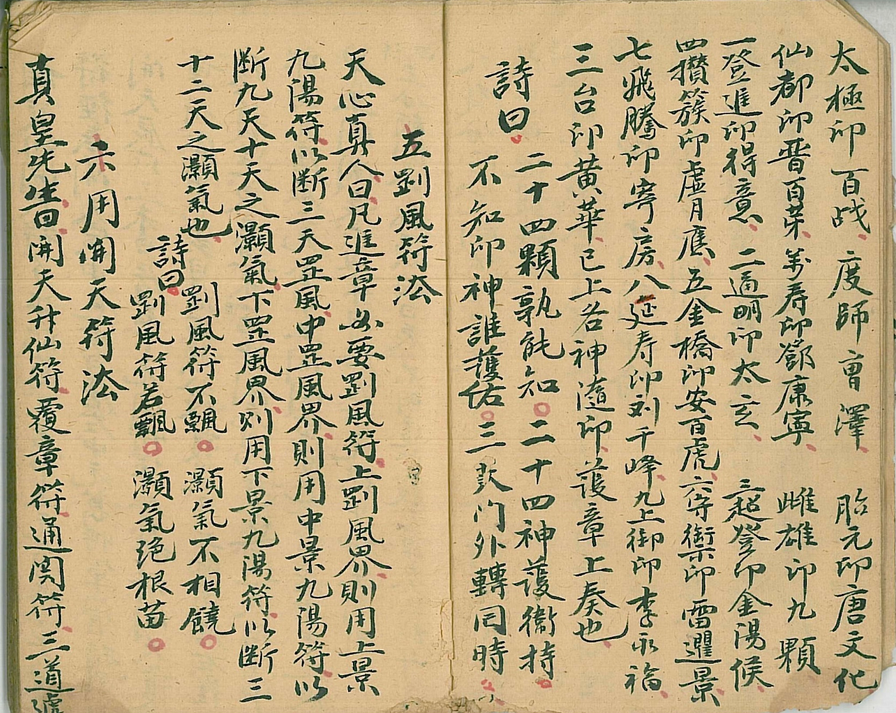 太極印百战、度師曾澤、胎元印唐文化
仙都印晋百荣、萬寿印鄧康寧、雌雄印九顆
一登進印得意、二通明印太玄、三起登印金湯候、
四攢簇印虚月應、五金橋印安百虎、六守衛印雷遷景
七飛騰印寄房、八延寿印刘千峰、九上御印李永福
三台印黄華、已上各神隨印、護章上奏也
詩曰。二十四顆孰能知。二十四神護衛持
不知印神誰護佑。三 門外轉同時。
五劄風符法
天心真人曰、凡進章必要劄風符、上劄風界、則用上景
九陽符、以断三天罡風、中罡風界、則用中景九陽符、以
断九天十天之灝氣、下罡風界、则用下景九陽符、以断三
十二天之灝氣也、
詩曰 劄風符不飄。灝氣不相饒。
劄風符若飄。灝氣绝根苗。
六用開天符法
真皇先生曰、開天升仙符、覆章符、通関符、三道